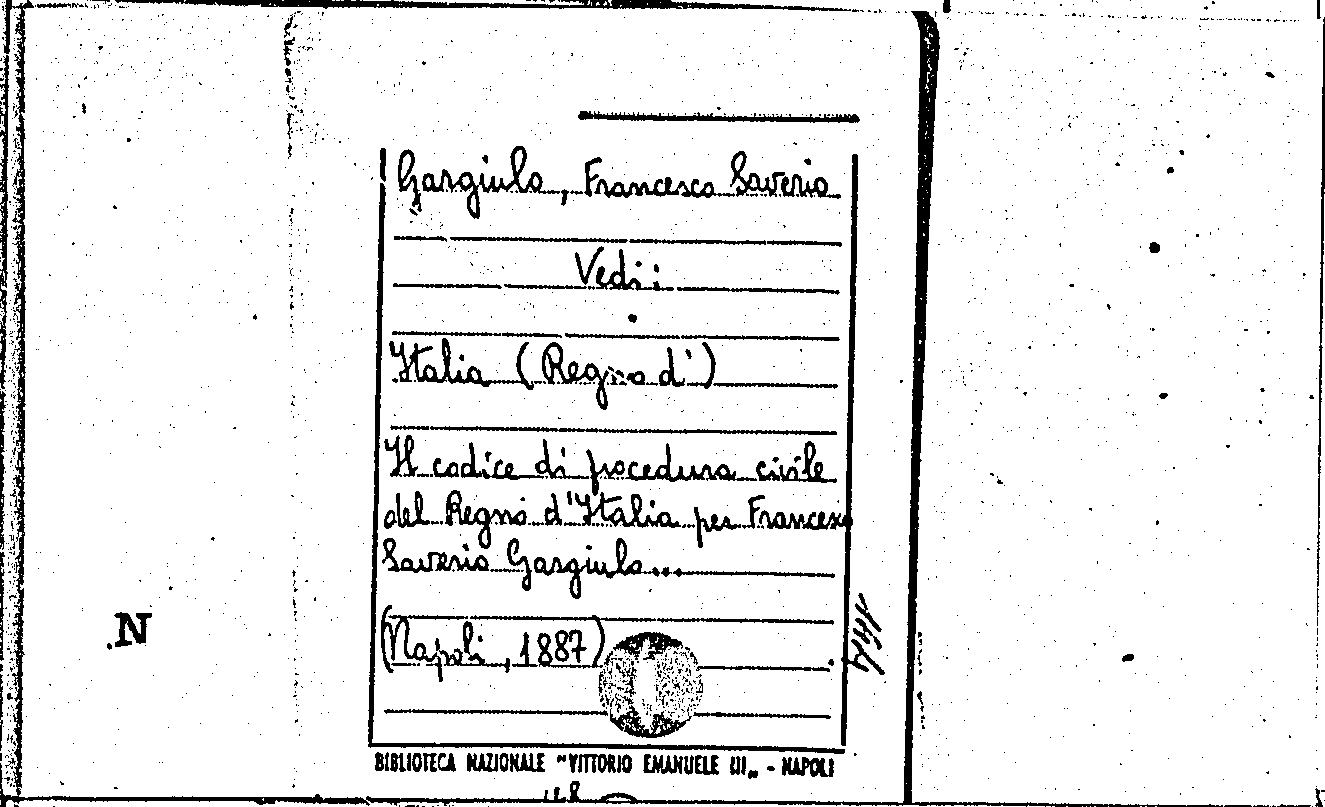 Gargiulo, Francesco Saverio
Vedi:
Italia (Regno d')
Il codice di procedura civile
del Regno d'Italia per Francesco
Saverio Gargiulo...
(Napoli, 1887)
N
BIBLIOTECA NAZIONALE "VITTORIO EMANUELE III„ - NAPOLI